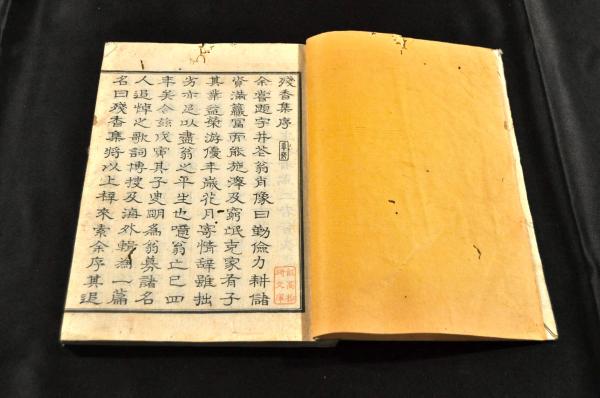 残香集序
余嘗題宇井苔翁肖像曰勤儉力耕儲
資滿籯富而能施澤及窮氓克家有子
其業益榮游優年歲花月寄情辭雖拙
劣亦足以盡翁之平生也噫翁亡已四
年矣今玆戊寅其子史明爲翁募諸名
人追悼之歌詞博搜及海外輯爲一篇
名曰殘香集將以上梓來索余序其追